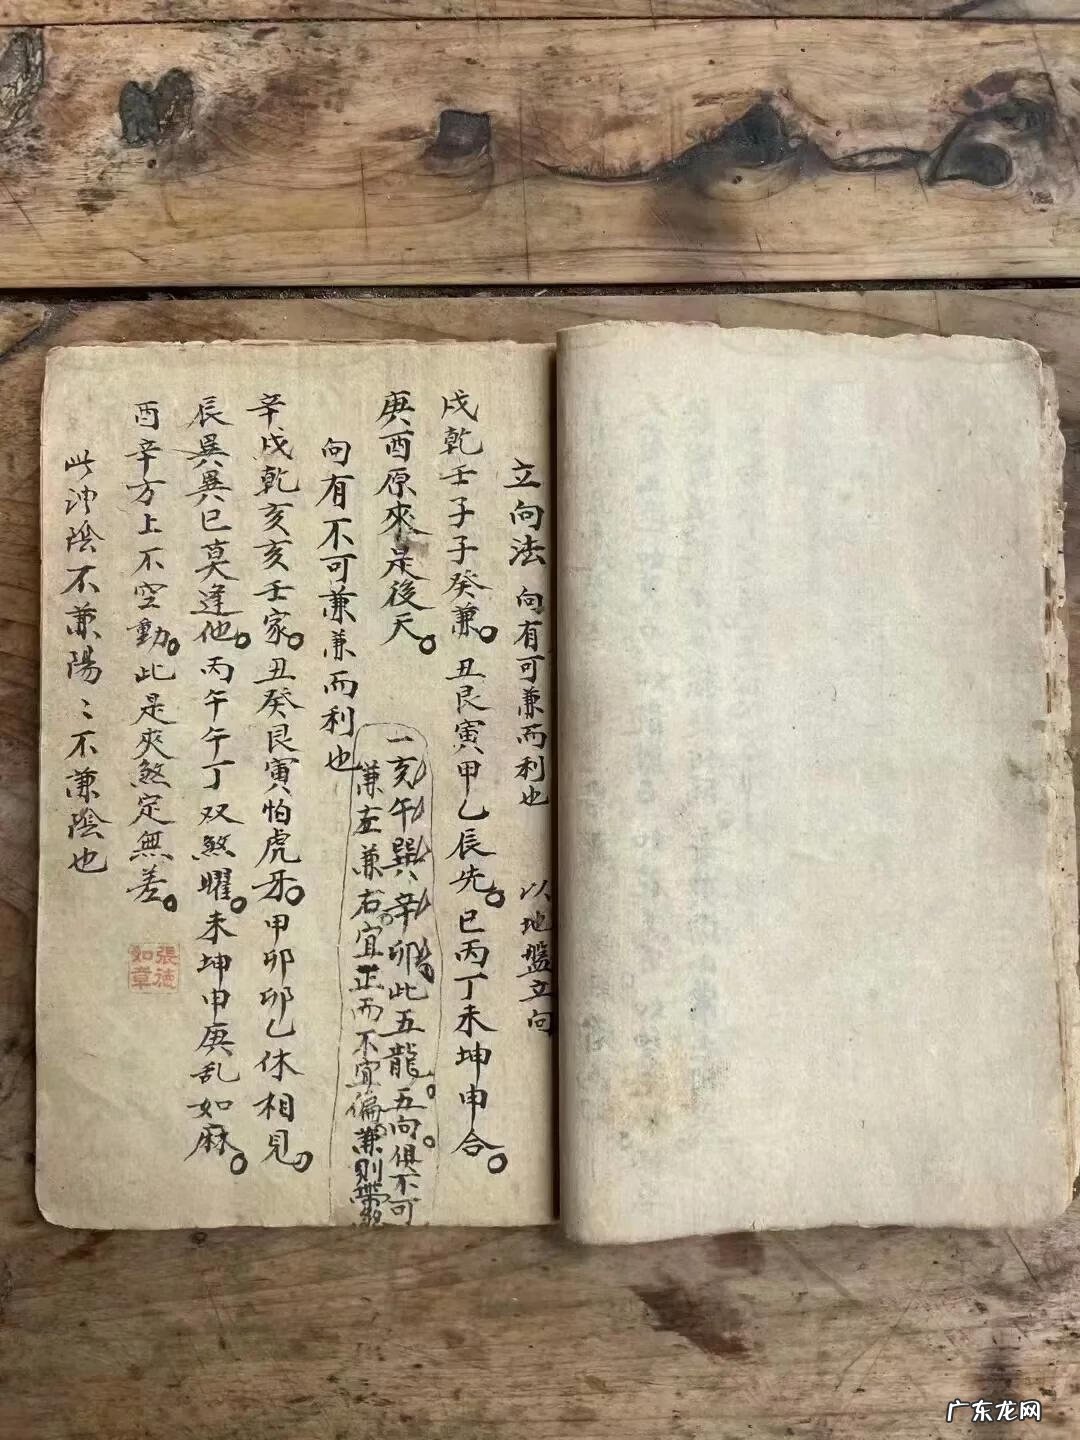 立向法 向有可兼而利也 以地盤立向
戌乾壬子子癸兼。丑艮寅甲乙辰先。巳丙丁未坤申合。
庚酉原來是後天。
一亥午巽辛卯此五龍。五向俱不可
兼左兼右宜正而不宜偏兼則帶
向有不可兼兼而利也
辛戌乾亥亥壬家。丑癸艮寅怕虎牙。甲卯卯乙休相見。
辰巽巽巳莫逢他。丙午午丁双煞曜。未坤申庚乱如麻。
酉辛方上不空動。此是夾煞定無差。
此陰不兼陽〻不兼陰也
張德
如章
广东龙网